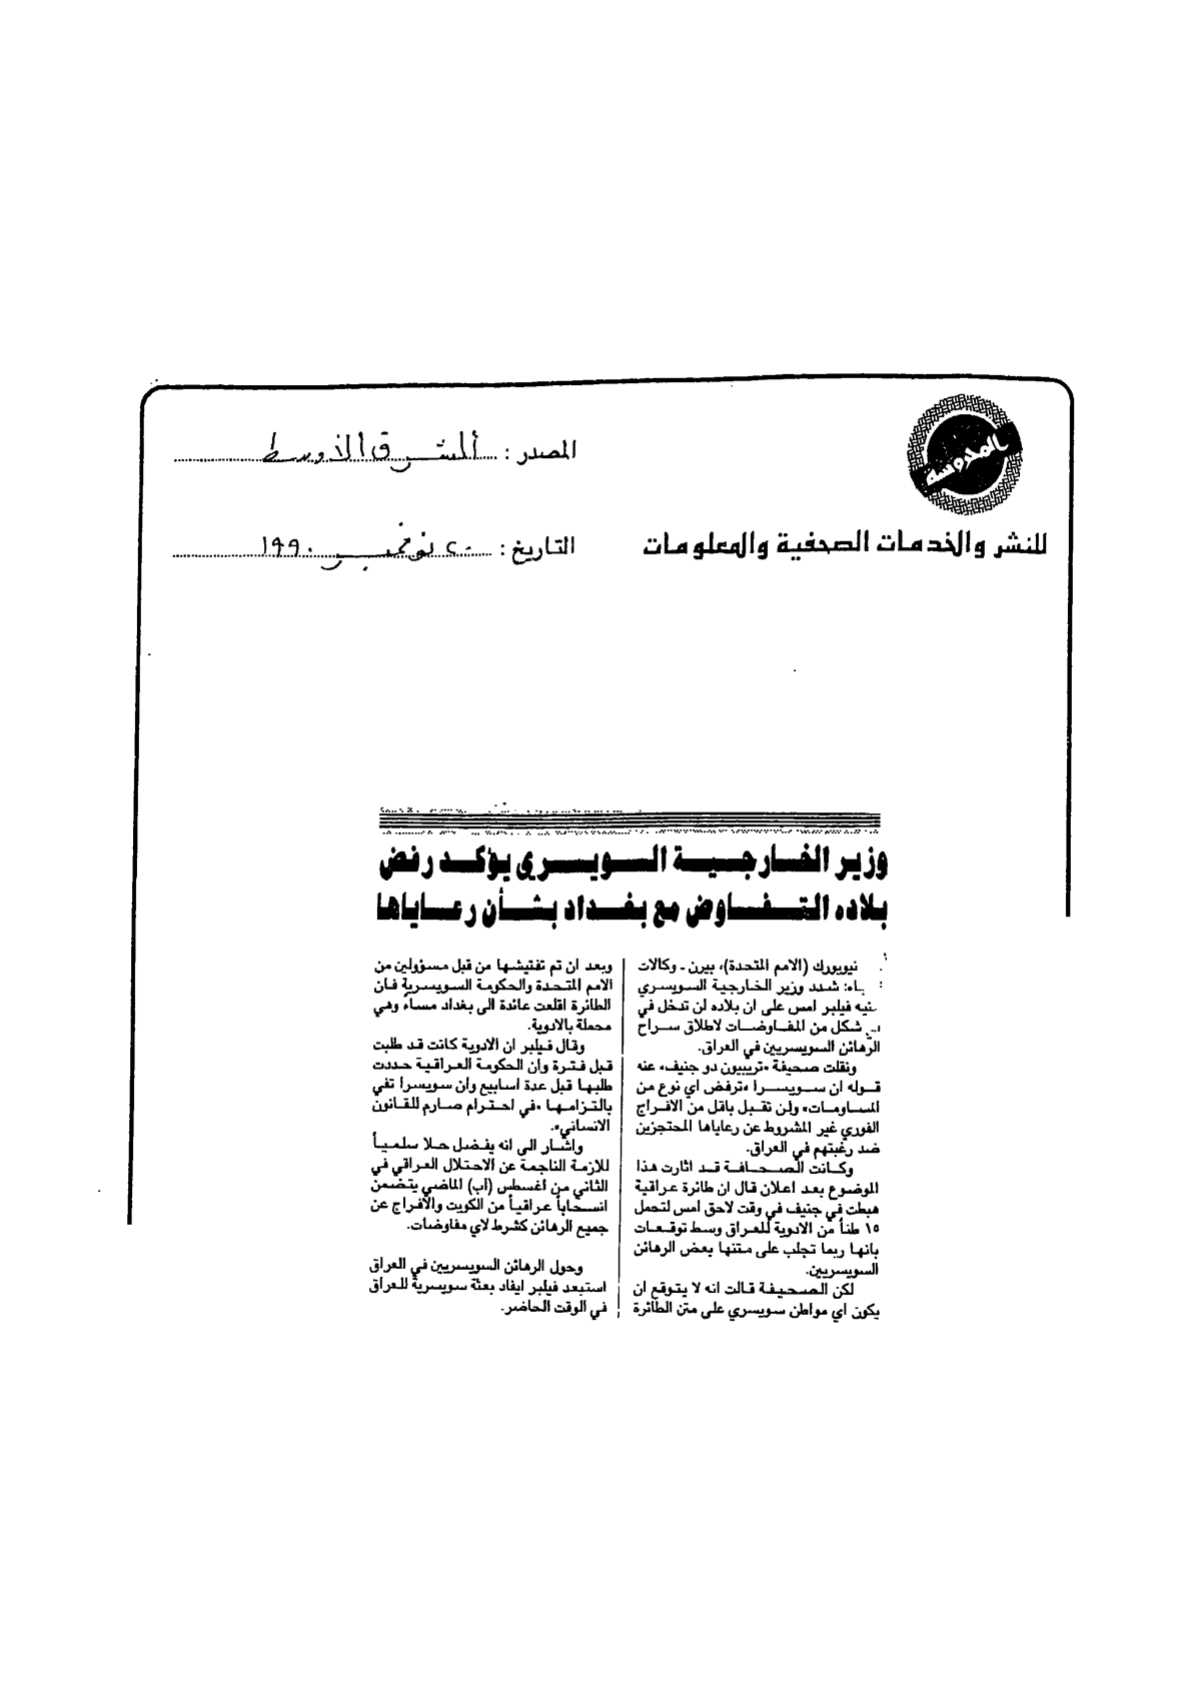 المدوسة
للنشر والخدمات الصحفية والمعلومات
المصدر : الشرق الأوسط
التاريخ : ٢٠ نوفمبر ١٩٩٠
وزير الخارجية السويسري يؤكد رفض
بلاده التفاوض مع بغداد بشأن رعاياها
نيويورك (الامم المتحدة)، بيرن - وكالات
شدد وزير الخارجية السويسري
فيلبر امس على ان بلاده لن تدخل في
شكل من المفاوضات لاطلاق سراح
الرهائن السويسريين في العراق.
ونقلت صحيفة «تريبيون دو جنيف» عنه
قوله ان سويسرا «ترفض اي نوع من
المساومات» ولن تقبل باقل من الافراج
الفوري غير المشروط عن رعاياها المحتجزين
ضد رغبتهم في العراق.
وكانت الصحافة قد اثارت هذا
الموضوع بعد اعلان قال ان طائرة عراقية
هبطت في جنيف في وقت لاحق امس لتحمل
١٥ طناً من الادوية للعراق وسط توقعات
بانها ربما تجلب على متنها بعض الرهائن
السويسريين.
لكن الصحيفة قالت انه لا يتوقع ان
يكون اي مواطن سويسري على متن الطائرة
وبعد ان تم تفتيشها من قبل مسؤولين من
الامم المتحدة والحكومة السويسرية فان
الطائرة اقلعت عائدة الى بغداد مساءً وهي
محملة بالادوية.
وقال فيلبر ان الادوية كانت قد طلبت
قبل فترة وان الحكومة العراقية حددت
طلبها قبل عدة اسابيع وان سويسرا تفي
بالتزامها «في احترام صارم للقانون
الانساني».
واشار الى انه يفضل حلا سلمياً
للازمة الناجمة عن الاحتلال العراقي في
الثاني من اغسطس (آب) الماضي يتضمن
انسحاباً عراقياً من الكويت والافراج عن
جميع الرهائن كشرط لاي مفاوضات.
وحول الرهائن السويسريين في العراق
استبعد فيلبر ايفاد بعثة سويسرية للعراق
في الوقت الحاضر.